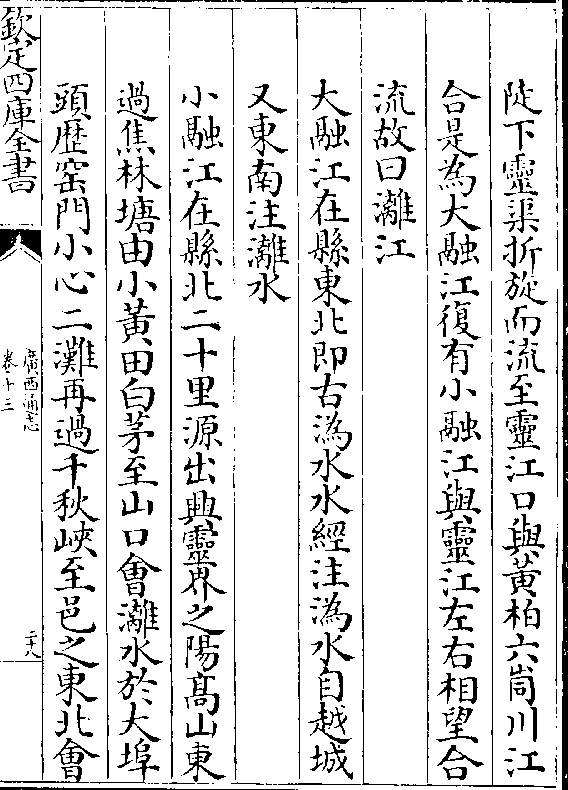 陡下靈渠折旋而流至靈江口與黃柏六峝川江
合是為大融江復有小融江與靈江左右相望合
流故曰灕江
大融江在縣東北即古溈水水經注溈水自越城
又東南注灕水
小融江在縣北二十里源出興靈界之陽髙山東
過焦林塘由小黃田白茅至山口會灕水於大埠
頭歷窑門小心二灘再過千秋峽至邑之東北會
欽定四庫全書
廣西通志
卷十三
二十八